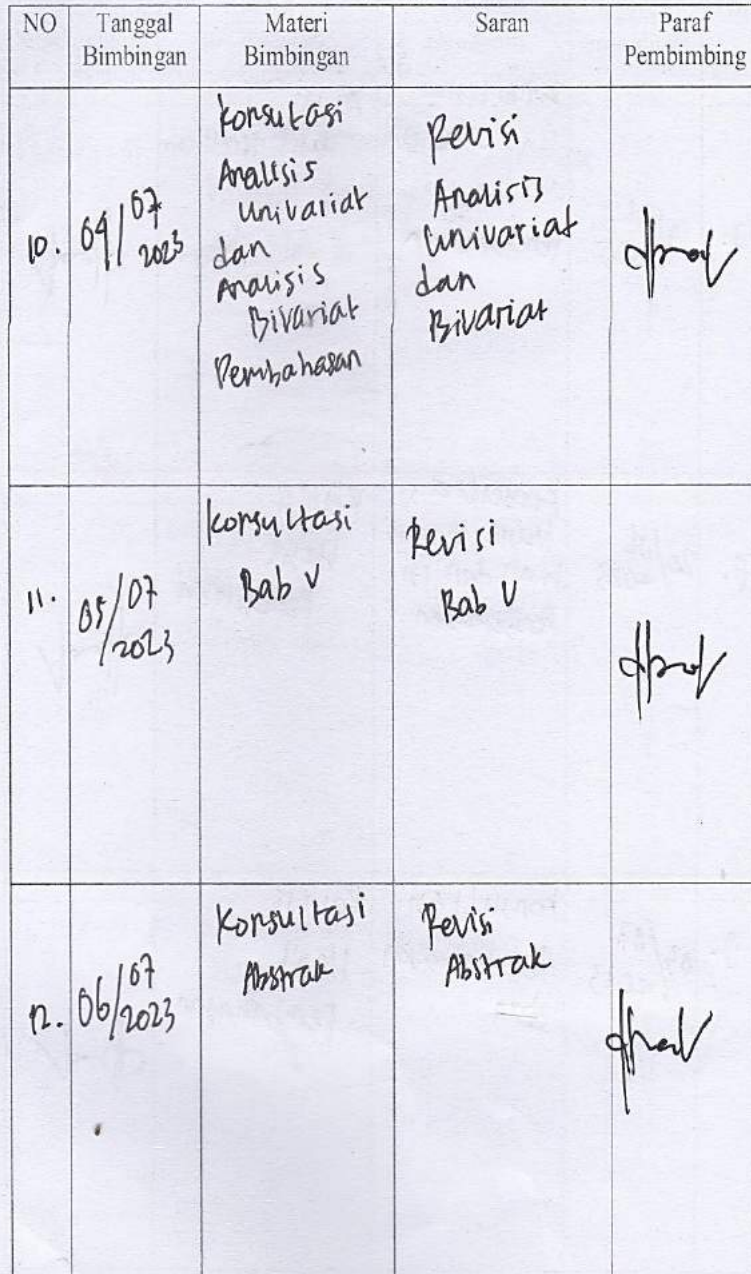 NO Tanggal Bimbingan Materi Bimbingan Saran Paraf Pembimbing
10. 04/07 2023
Konsultasi
Analisis
Univariat
dan
Analisis
Bivariat
Pembahasan
Revisi
Analisis
Univariat
dan
Bivariat
11. 05/07/2023
Konsultasi
Bab V
Revisi
Bab V
12. 06/07/2023
Konsultasi
Abstrak
Revisi
Abstrak